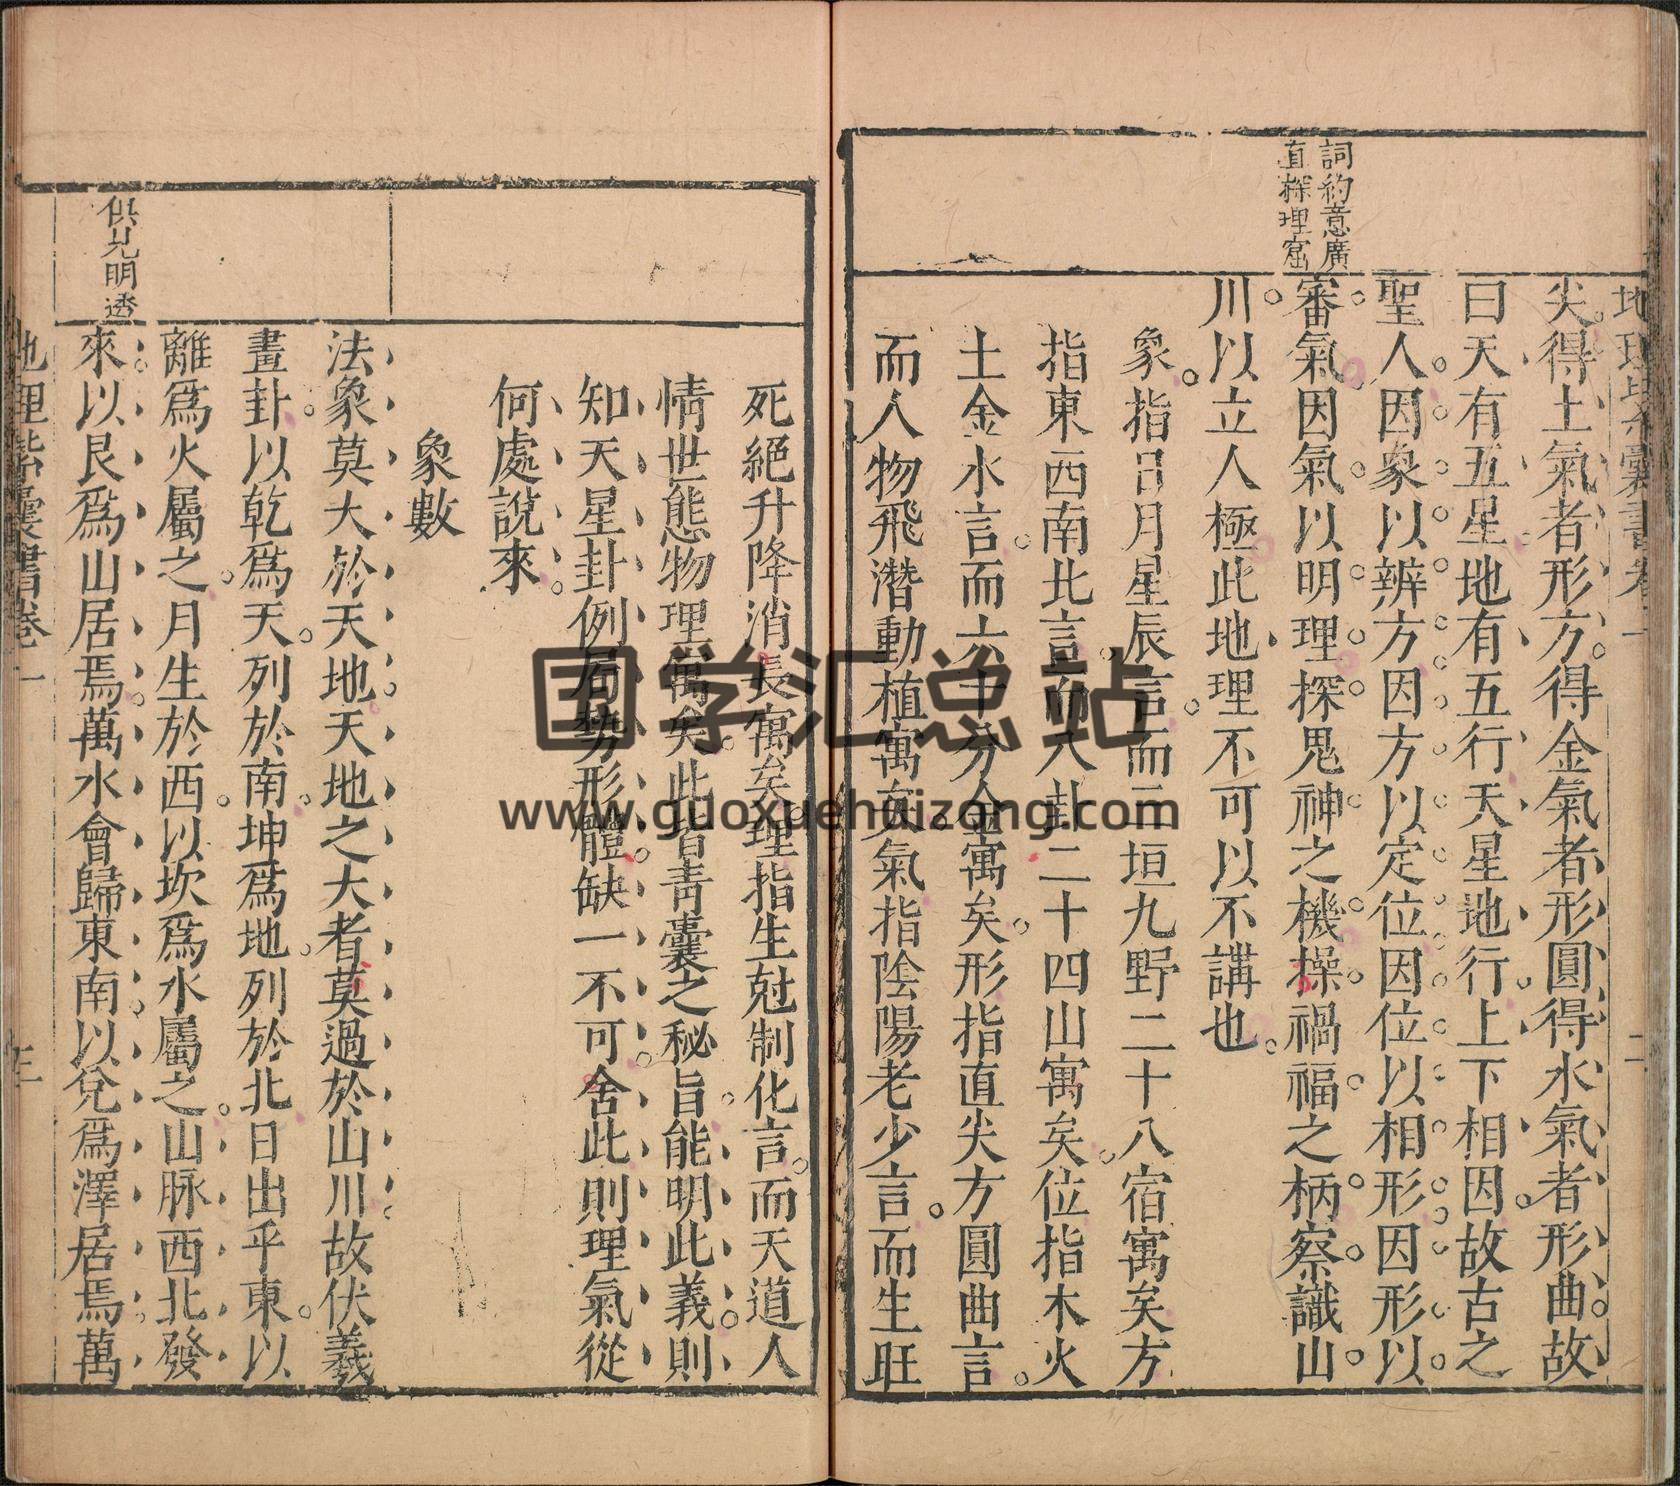 地理紫囊書卷一 二
尖得土氣者形方得金氣者形圓得水氣者形曲故
曰天有五星地有五行天星地行上下相因故古之
聖人因象以辨方因方以定位因位以相形因形以
審氣因氣以明理探鬼神之機操禍福之柄察識山
川以立人極此地理不可以不講也
詞約意廣
直探理窟
象指日月星辰言而三垣九野二十八宿寓矣方
指東西南北言而八卦二十四山寓矣位指木火
土金水言而六十分金寓矣形指直尖方圓曲言
而人物飛潛動植寓矣氣指陰陽老少言而生旺
死絕升降消長寓矣理指生尅制化言而天道人
情世態物理寓矣此皆青囊之秘旨能明此義則
知天星卦例局勢形體缺一不可舍此則理氣從
何處說來
象數
法象莫大於天地天地之大者莫過於山川故伏羲
畫卦以乾爲天列於南坤爲地列於北日出乎東以
離爲火屬之月生於西以坎爲水屬之山脉西北發
來以艮爲山居焉萬水會歸東南以兌爲澤居焉萬
供見明透
地理紫囊書卷一 三
国学汇总站
www.guoxuehuizong.com